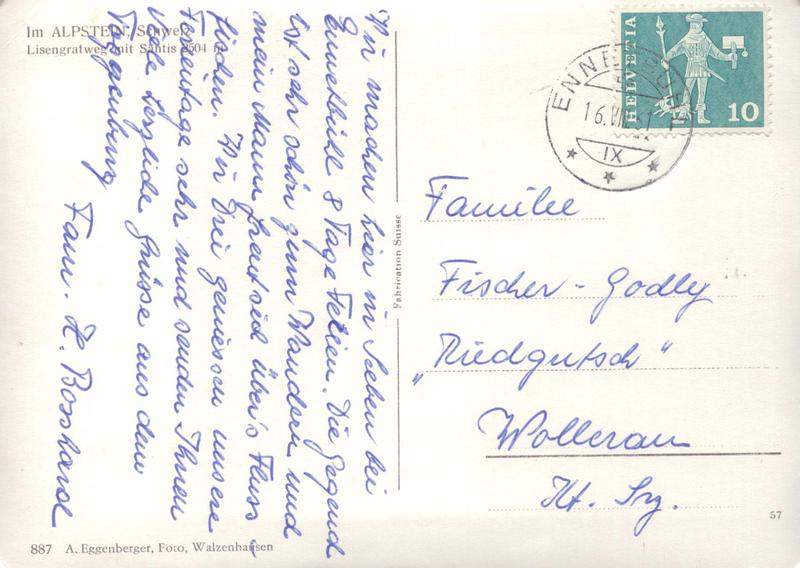 Im ALPSTEIN, Schweiz
Lisengratweg mit Säntis 2504 m
Wir machen hier in Seeben bei
Ennetbühl 8 Tage Ferien. Die Gegend
ist sehr schön zum Wandern und
mein Mann freut sich über's Fluss=
fischen. Wir Drei geniessen unsere
Ferientage sehr und senden Ihnen
viele herzliche Grüsse aus dem
Toggenburg
Fam. H. Bosshard
887 A. Eggenberger, Foto, Walzenhausen
Fabrication Suisse
HELVETIA
10
ENNETBÜHL
IX
Familie
Fischer - Godly
„Riedgutsch“
Wollerau
Kt. Sz.
57